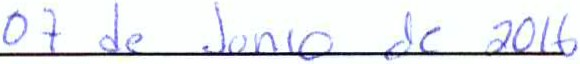 07 de Junio de 2016